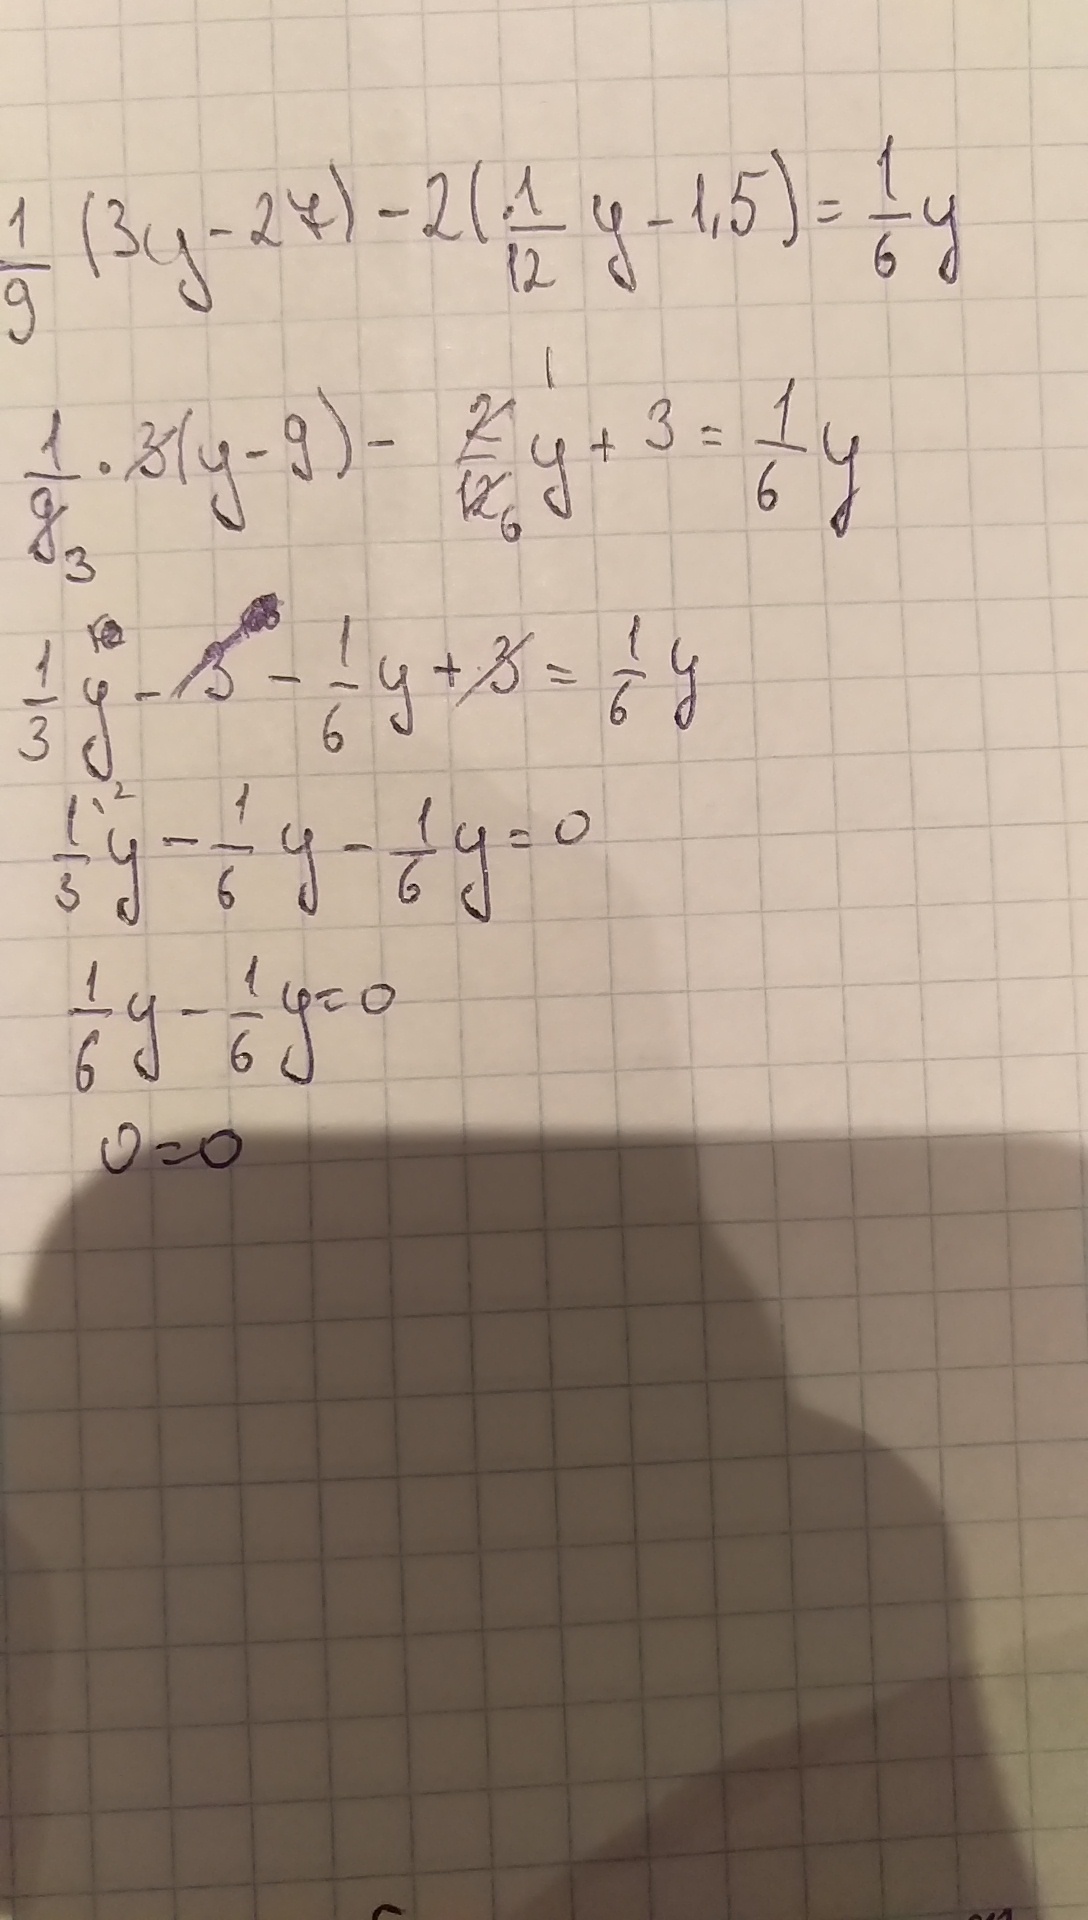 1/9 (3y - 27) - 2(1/12 y - 1,5) = 1/6 y
1/9 3 · 3(y - 9) - 2/12 1 6 y + 3 = 1/6 y
1/3 y - 3 - 1/6 y + 3 = 1/6 y
1/3 \2 y - 1/6 y - 1/6 y = 0
1/6 y - 1/6 y = 0
0 = 0